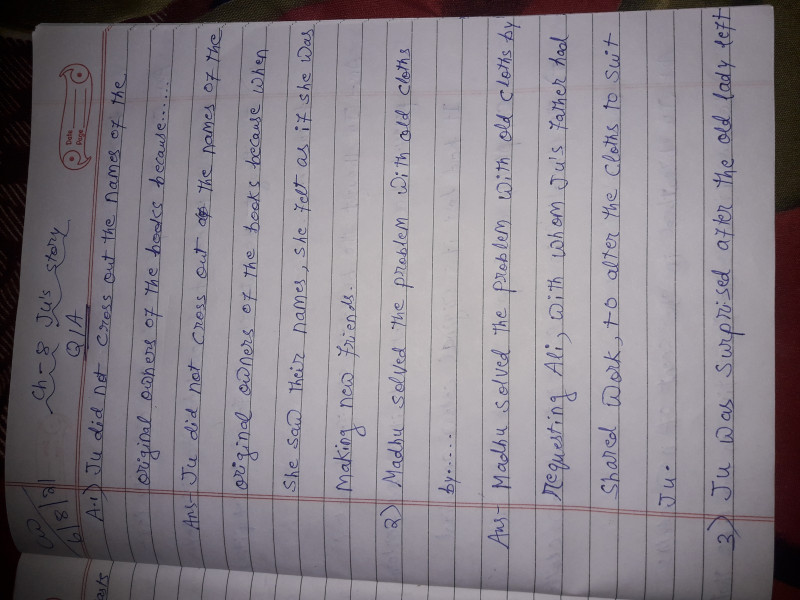 Date
Page
6/8/21
Ch-8 Ju's story
Q/A
A.1) Ju did not cross out the names of the
original owners of the books because.......
Ans- Ju did not cross out the names of the
original owners of the books because when
She saw their names, she felt as if she was
Making new friends.
2) Madhu solved the problem with old cloths
by.....
Ans- Madhu solved the problem with old cloths by
requesting Ali, with whom Ju's father had
Shared work, to alter the cloths to suit
Ju.
3) Ju was surprised after the old lady left